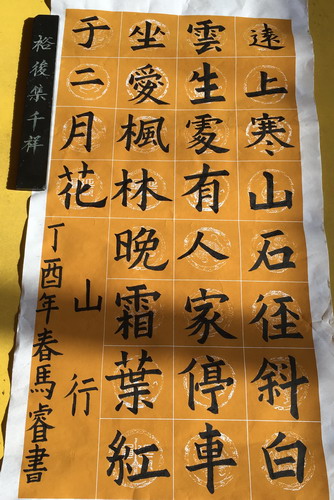 遠上寒山石径斜白
雲生處有人家停車
坐愛楓林晚霜葉紅
于二月花
山行
丁酉年春馬睿書
裕後集千祥